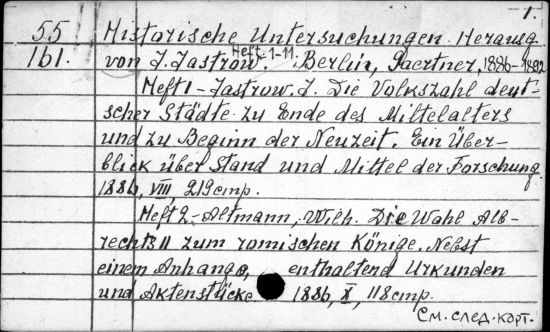 1.
55 Historische Untersuchungen. Herausg
161. von J. Jastrow. Heft 1-11 Berlin, Gaertner, 1886-1892
Heft 1 - Jastrow, J. Die Volkszahl deut-
scher Städte zu Ende des Mittelalters
und zu Beginn der Neuzeit. Ein Über-
blick über Stand und Mittel der Forschung.
1886, VIII, 219 стр.
Heft 2. - Altmann, Wilh. Die Wahl Alb-
rechts II zum romischen Könige. Nebst
einem Anhange, enthaltend Urkunden
und Aktenstücke 1886, X, 118 стр.
См. след. карт.